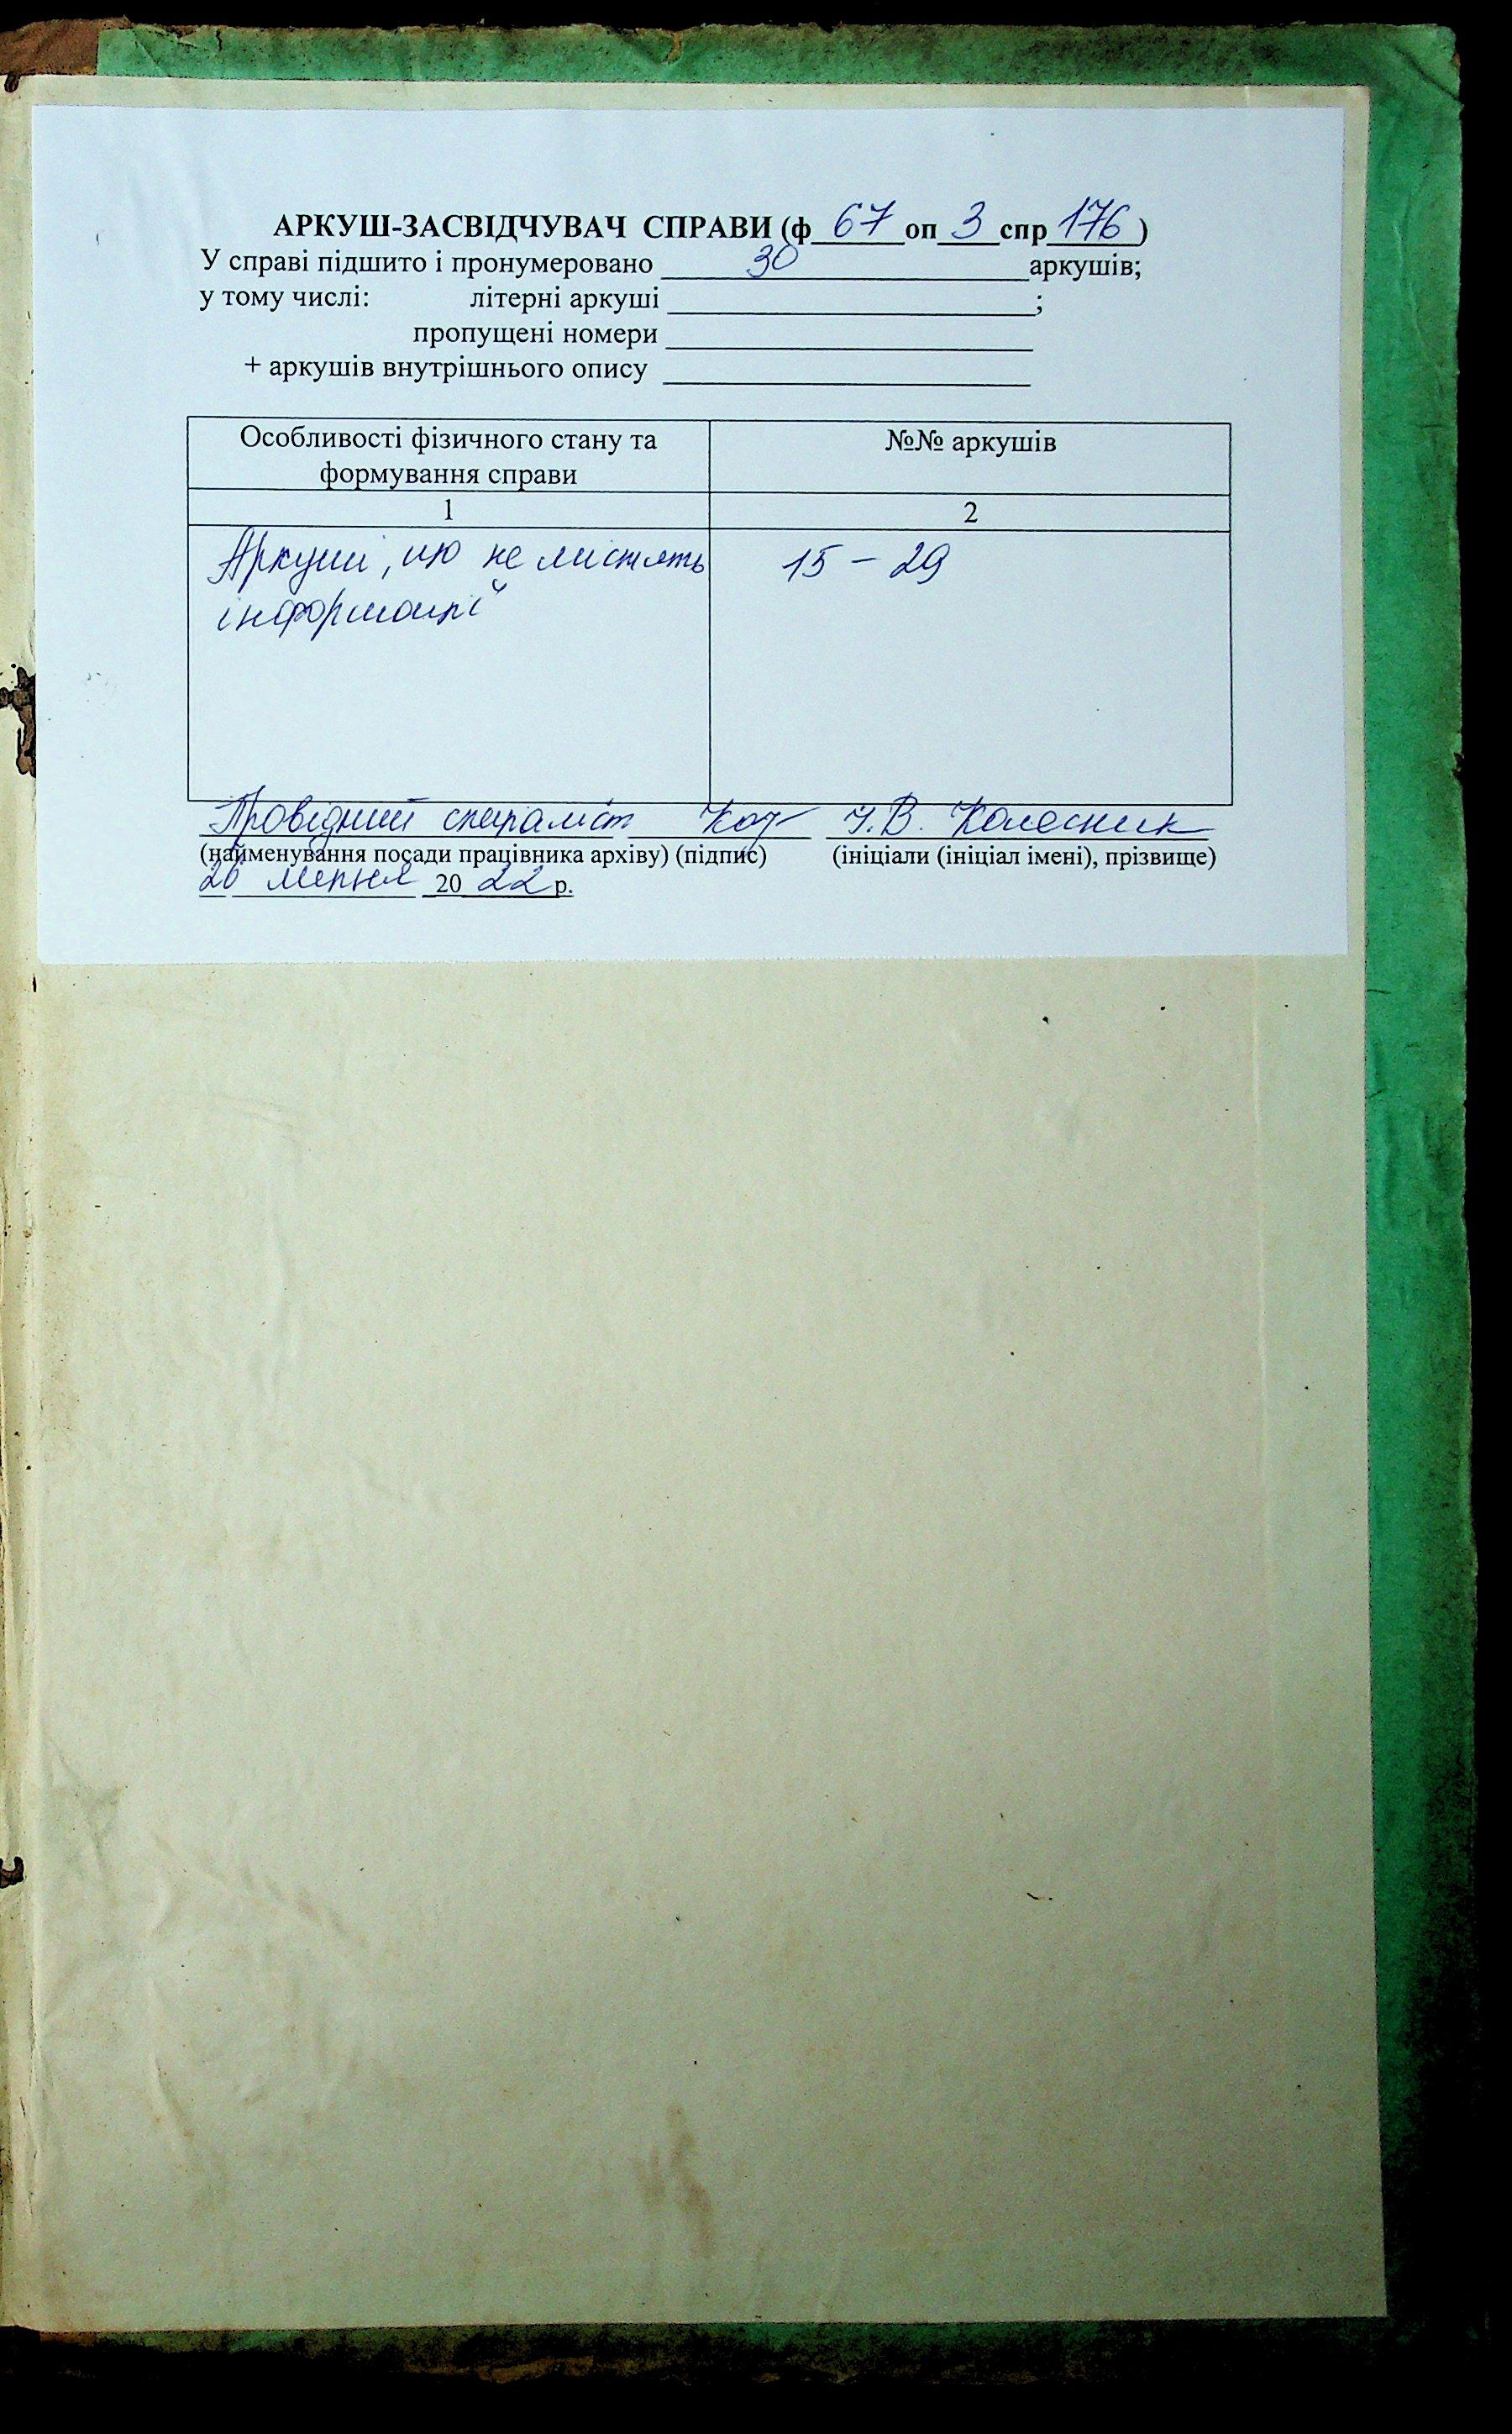 АРКУШ-ЗАСВІДЧУВАЧ СПРАВИ (ф 67 оп 3 спр 176)
У справі підшито і пронумеровано 30 аркушів;
у тому числі: літерні аркуші ;
пропущені номери
+ аркушів внутрішнього опису
Особливості фізичного стану та №№ аркушів
формування справи
1 2
Аркуші, що не містять 15 – 29
інформації
Провідний спеціаліст І.В. Колесник
(найменування посади працівника архіву) (підпис) (ініціали (ініціал імені), прізвище)
20 липня 2022 р.